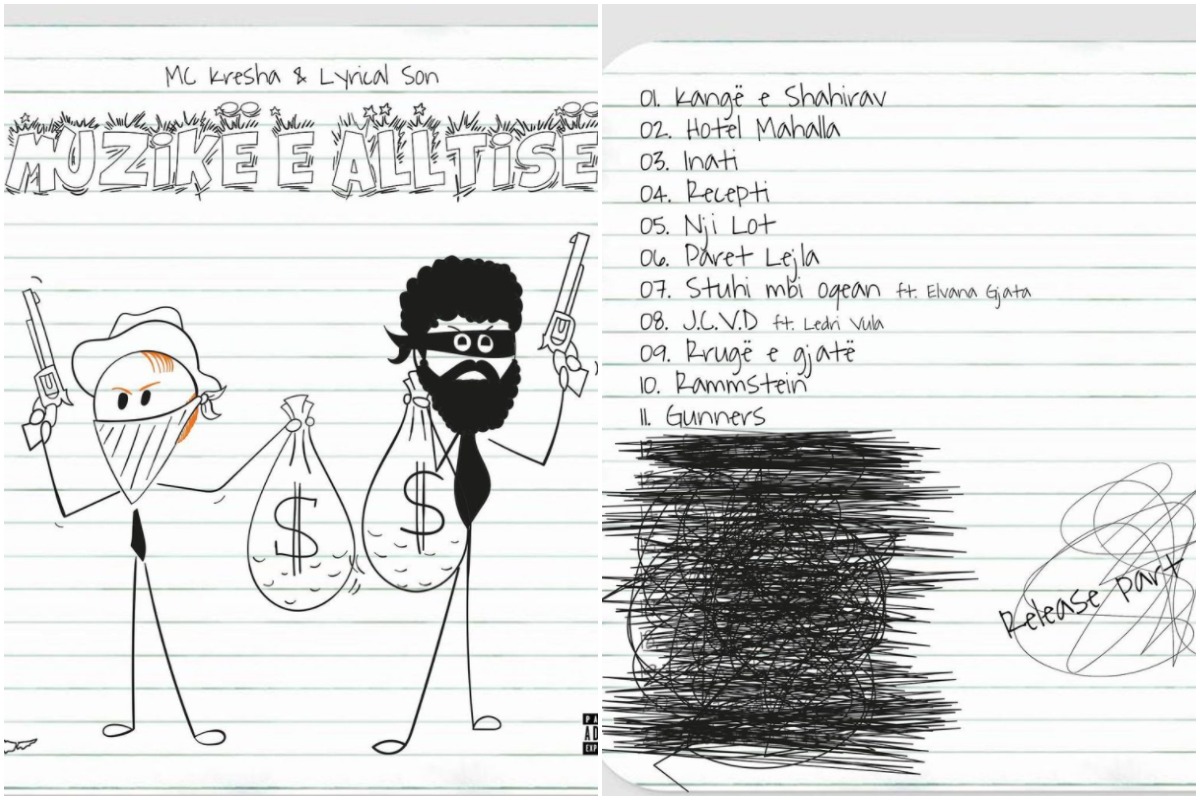 MC Kresha & Lyrical Son
MUZIKË E ALLTISË
$
$
01. Kangë e Shahirav
02. Hotel Mahalla
03. Inati
04. Recepti
05. Nji Lot
06. Paret Lejla
07. Stuhi mbi oqean ft. Elvana Gjata
08. J.C.V.D ft. Ledri Vula
09. Rrugë e gjatë
10. Rammstein
11. Gunners
Release part
PA
AD
EXP